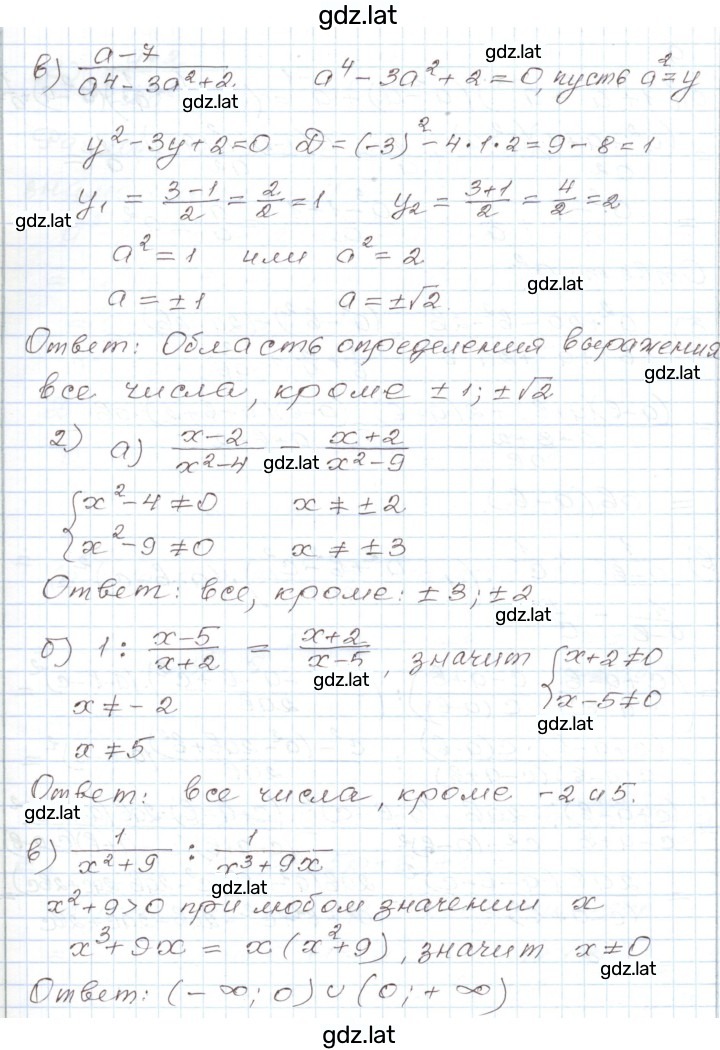 gdz.lat
в) (a-7)/(a⁴-3a²+2)   a⁴-3a²+2=0, пусть a²=y
gdz.lat
gdz.lat
y²-3y+2=0  D=(-3)²-4·1·2=9-8=1
y₁ = (3-1)/2 = 2/2 = 1   y₂ = (3+1)/2 = 4/2 = 2
gdz.lat
a²=1 или a²=2
a=±1   a=±√2
gdz.lat
Ответ: Область определения выражения
gdz.lat
все числа, кроме ±1; ±√2
2) а) (x-2)/(x²-4) - (x+2)/(x²-9)
gdz.lat
{x²-4≠0   x≠±2
{x²-9≠0   x≠±3
Ответ: все, кроме: ±3; ±2
gdz.lat
б) 1 : (x-5)/(x+2) = (x+2)/(x-5), значит {x+2≠0
gdz.lat
x≠-2   {x-5≠0
gdz.lat
x≠5
Ответ: все числа, кроме -2 и 5.
gdz.lat
в) 1/(x²+9) : 1/(x³+9x)
gdz.lat
x²+9>0 при любом значении x
x³+9x = x(x²+9), значит x≠0
gdz.lat
Ответ: (-∞; 0)∪(0; +∞)
gdz.lat